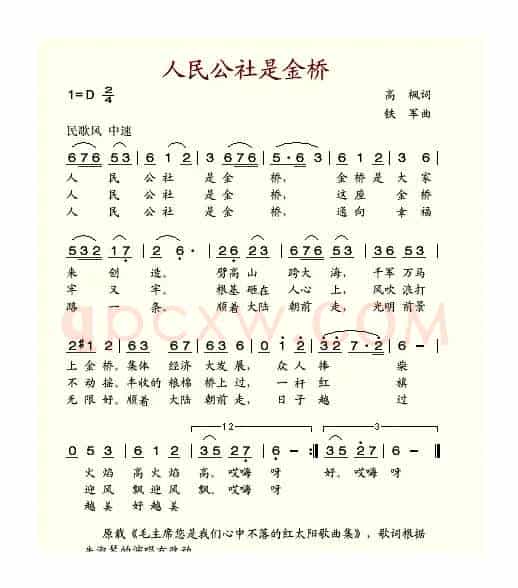 人民公社是金桥
1=D 2/4
高 枫词
铁 军曲
民歌风 中速
676 53 | 6 1 2 | 3 676 | 5·6 3 | 6 1 2 | 3 6 |
人 民 公 社 是金 桥, 金桥是 大家
人 民 公 社 是金 桥, 这座 金桥
人 民 公 社 是金 桥, 通向 幸福
532 17 | 2 6· | 26 23 | 676 53 | 35 23 |
来 创 造。 劈高山 跨大 海, 千军万马
牢 又 牢。 根基砸在 人心 上, 风吹浪打
路 一 条。 顺着大陆 朝前 走, 光明前景
2#1 2 | 63 67 | 63 63 | 0 1 2 | 32 7·2 | 6 – |
上金桥。集体 经济 大发展, 众人 捧 柴
不动摇。丰收的粮棉 桥上过, 一杆 红 旗
无限好。顺着 大陆 朝前走, 日子 越 过
12
3
0 5 3 | 6 1 2 | 35 27 | 6 – :‖ 35 27 | 6 – ‖
火焰 高火焰 高。哎嗨 呀 好。哎嗨 呀
迎风 飘迎风 飘。哎嗨 呀
越美 好越美
原载《毛主席您是我们心中不落的红太阳歌曲集》,歌词根据